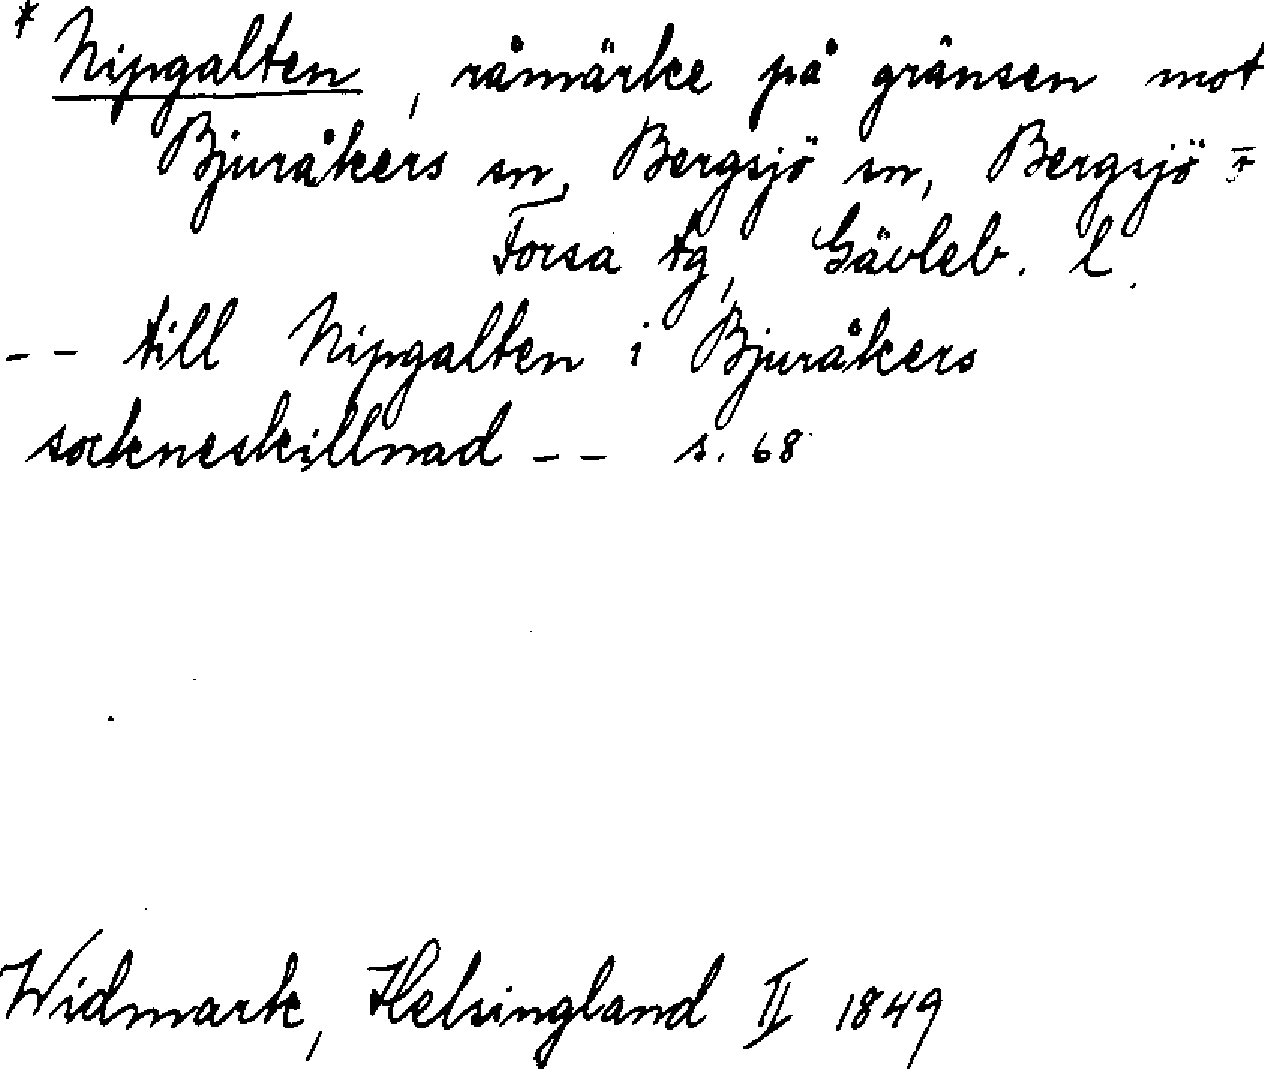 * Nipgalten, råmärke på gränsen mot
Bjuråkers sn, Bergsjö sn, Bergsjö =
Forsa tg, Gävleb. l.
-- till Nipgalten i Bjuråkers
sockneskillnad -- s. 68
Widmark, Helsingland II 1849